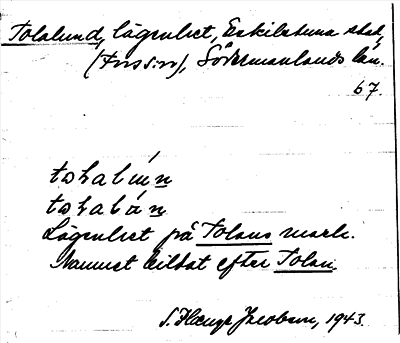 Tolalund, lägenhet, Eskilstuna stad,
(Fors sn), Södermanlands län.
67.
Lägenhet på Tolans mark.
Namnet bildat efter Tolan.
S. Hænge Jacobsen, 1943.